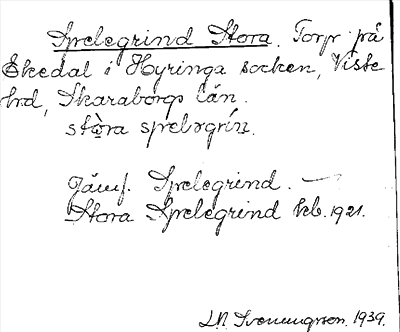 Spelegrind Stora. Torp på
Ekedal i Hyringa socken, Viste
hrd, Skaraborgs län.
stòra spelǝgrín.
Jämf. Spelegrind. —
Stora Spelegrind kb. 1921.
1939.